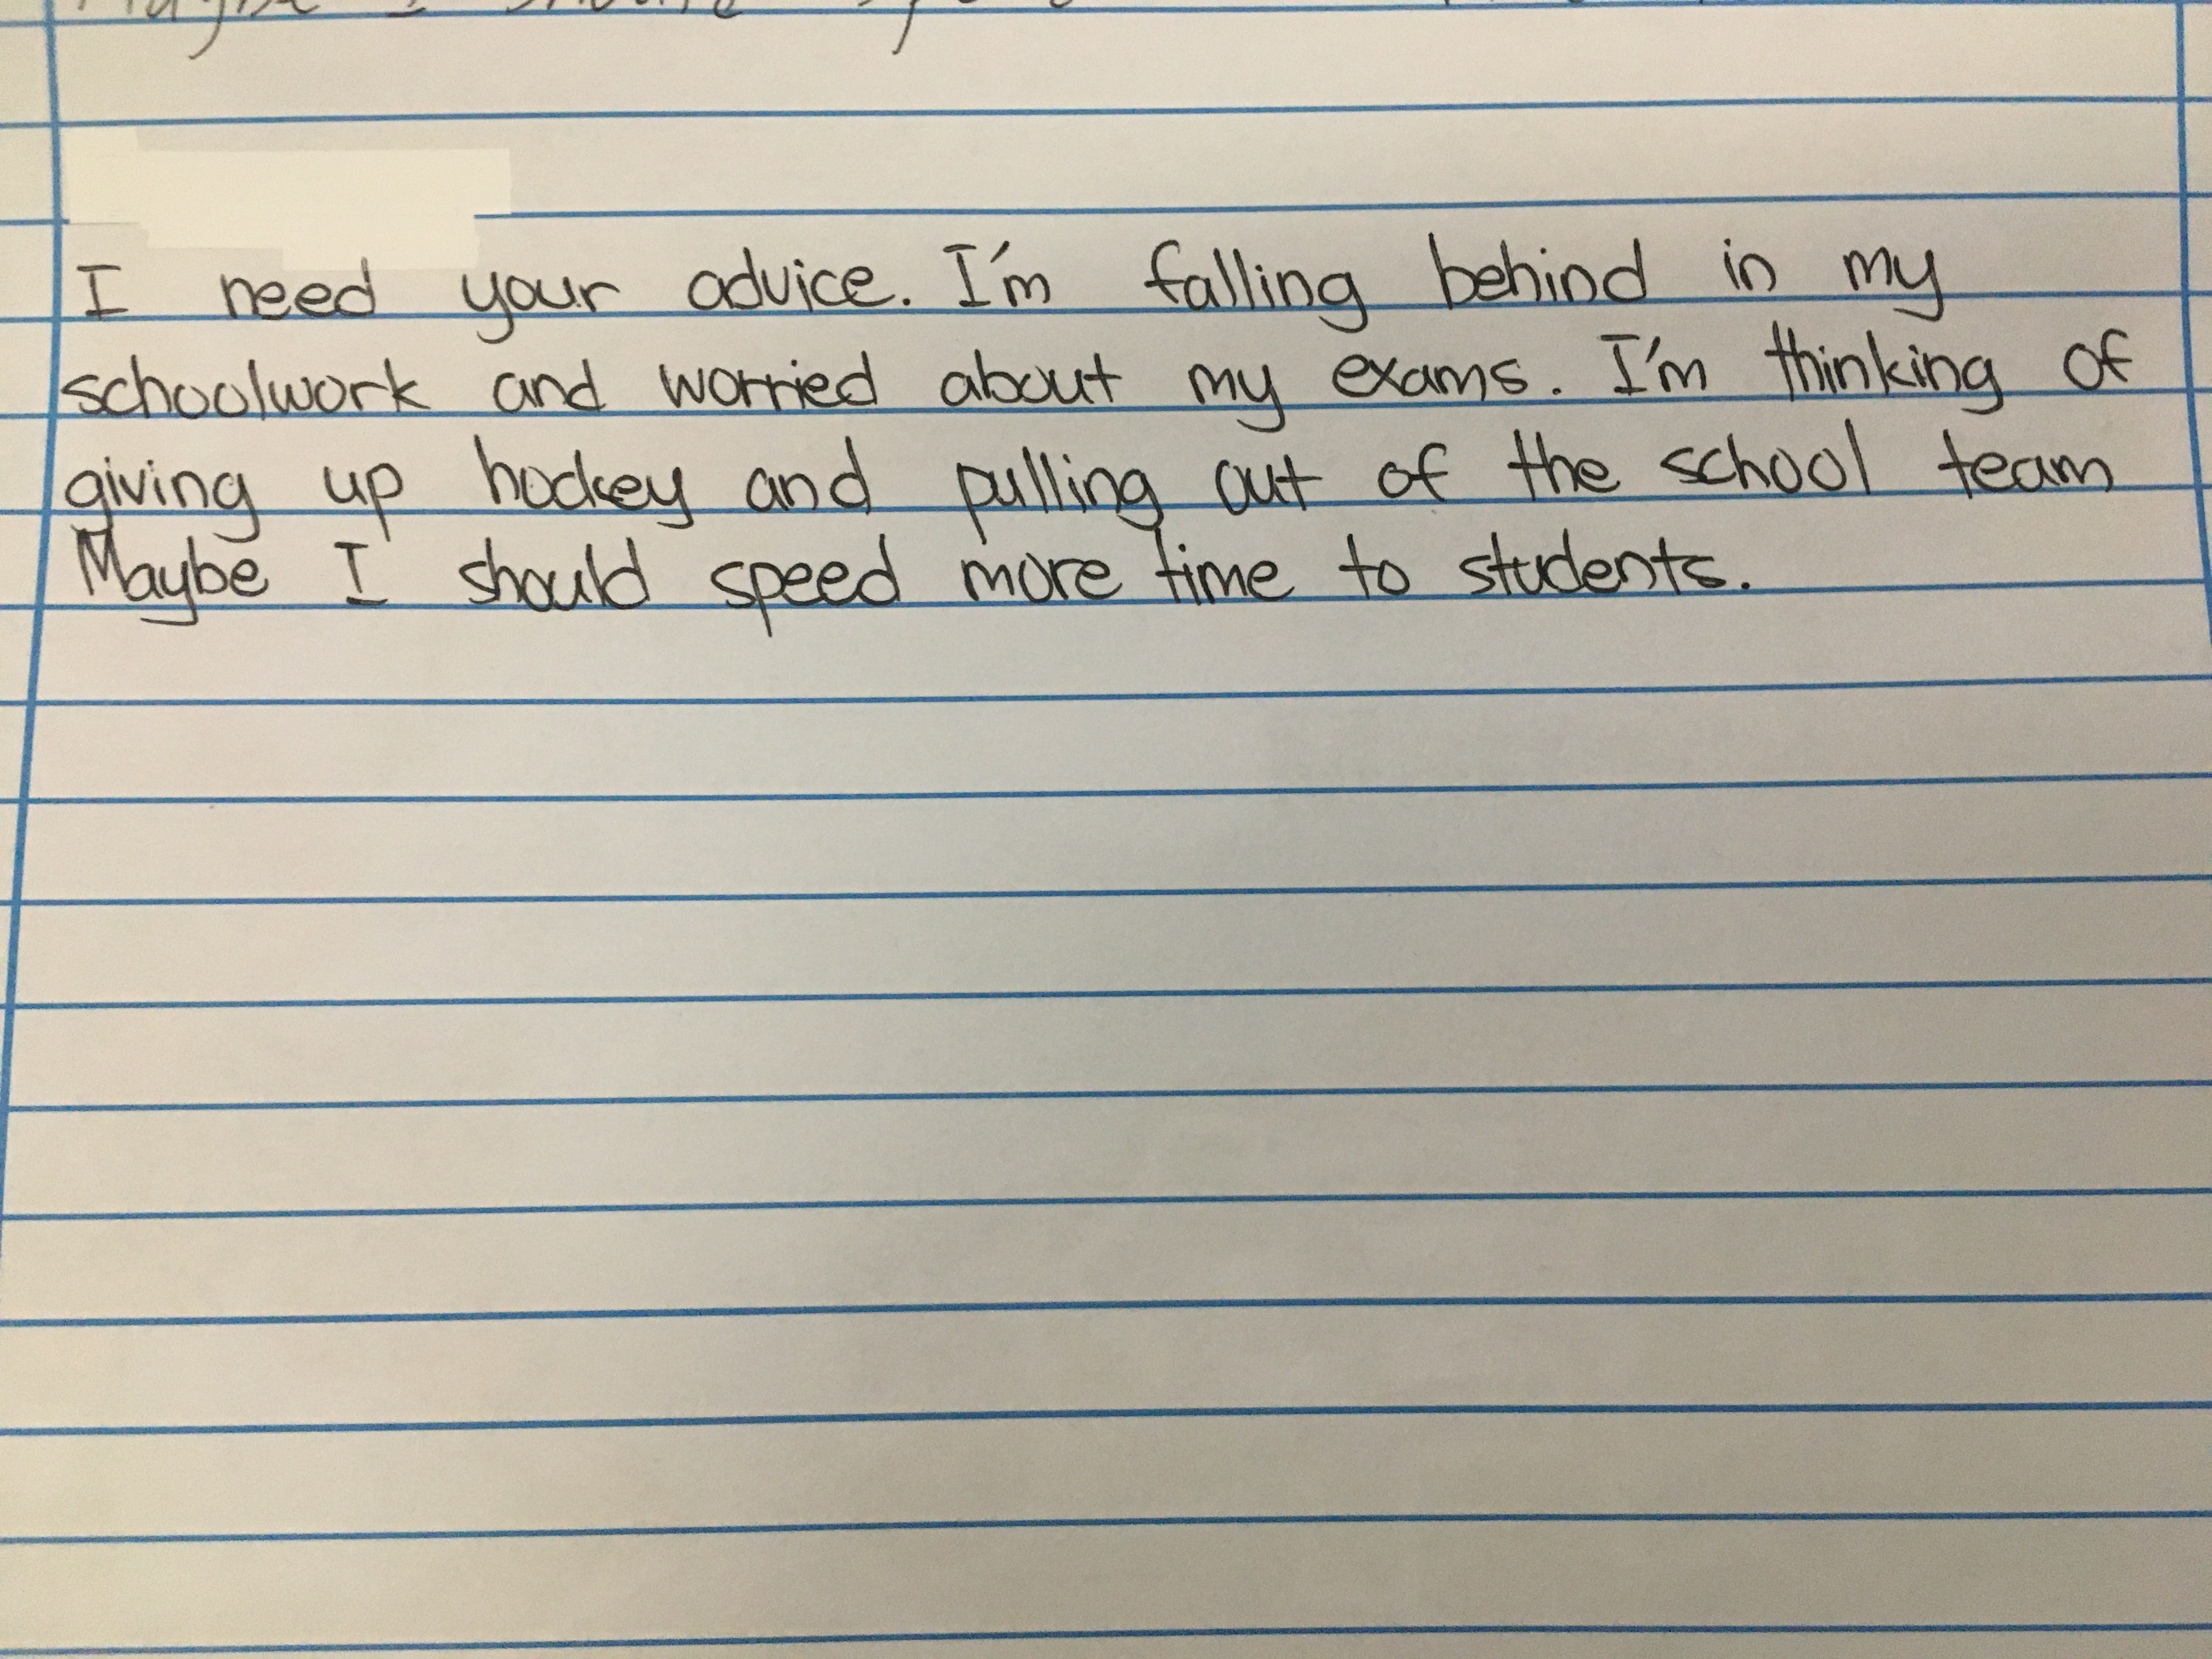 Maybe I should
I need your advice. I'm falling behind in my
schoolwork and worried about my exams. I'm thinking of
giving up hockey and pulling out of the school team
Maybe I should speed more time to students.